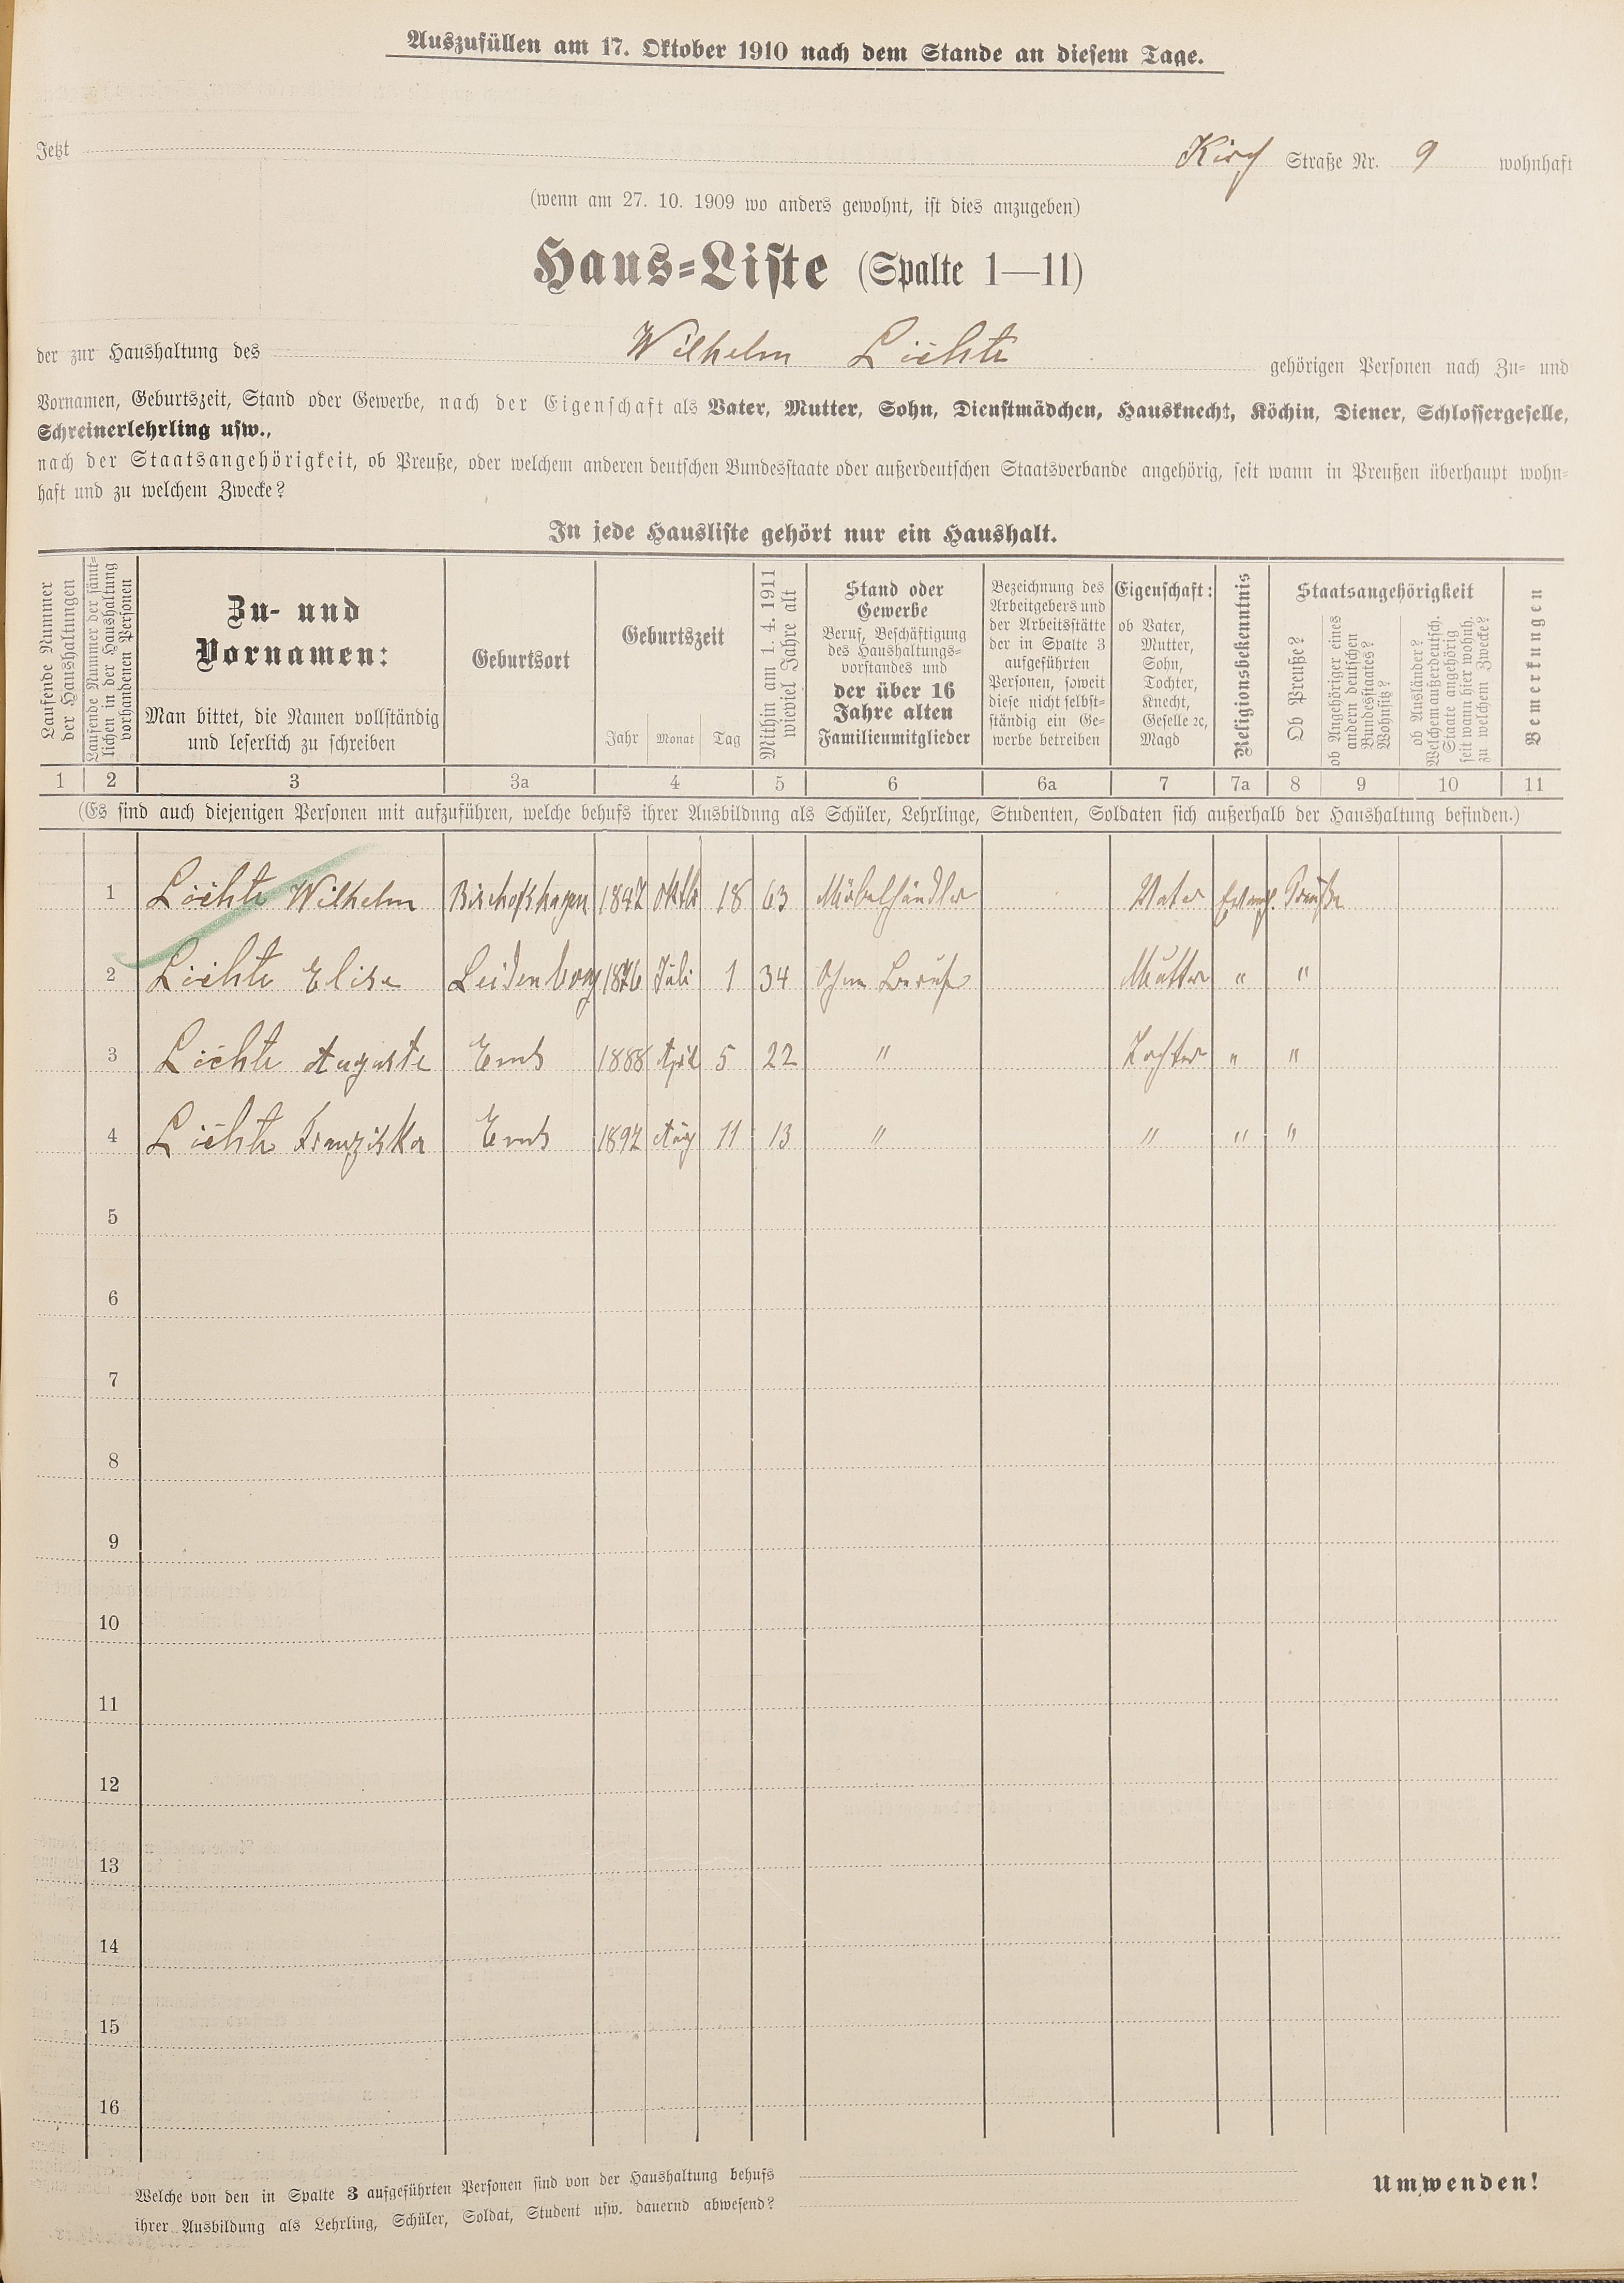 Auszufüllen am 17. Oktober 1910 nach dem Stande an diesem Tage.
Jetzt Kirch Straße Nr. 9 wohnhaft
(wenn am 27. 10. 1909 wo anders gewohnt, ist dies anzugeben)
Haus-Liste (Spalte 1—11)
der zur Haushaltung des Wilhelm Lichte gehörigen Personen nach Zu- und
Vornamen, Geburtszeit, Stand oder Gewerbe, nach der Eigenschaft als Vater, Mutter, Sohn, Dienstmädchen, Hausknecht, Köchin, Diener, Schlossergeselle,
Schreinerlehrling usw.,
nach der Staatsangehörigkeit, ob Preuße, oder welchem anderen deutschen Bundesstaate oder außerdeutschen Staatsverbande angehörig, seit wann in Preußen überhaupt wohn-
haft und zu welchem Zwecke?
In jede Hausliste gehört nur ein Haushalt.
Laufende Nummer
der Haushaltungen
Laufende Nummer der sämt-
lichen in der Haushaltung
vorhandenen Personen
Zu- und
Vornamen:
Man bittet, die Namen vollständig
und leserlich zu schreiben
Geburtsort
Geburtszeit
Jahr Monat Tag
Mithin am 1. 4. 1911
wieviel Jahre alt
Stand oder
Gewerbe
Beruf, Beschäftigung
des Haushaltungs-
vorstandes und
der über 16
Jahre alten
Familienmitglieder
Bezeichnung des
Arbeitgebers und
der Arbeitsstätte
der in Spalte 3
aufgeführten
Personen, soweit
diese nicht selbst-
ständig ein Ge-
werbe betreiben
Eigenschaft:
ob Vater,
Mutter,
Sohn,
Tochter,
Knecht,
Geselle 2c,
Magd
Religionsbekenntnis
Staatsangehörigkeit
Ob Preuße?
ob Angehöriger eines
andern deutschen
Bundesstaates?
Wohnsitz?
ob Ausländer?
Welchem außerdeutsch.
Staate angehörig
seit wann hier wohnh.
zu welchem Zwecke?
Bemerkungen
1 2 3 3a 4 5 6 6a 7 7a 8 9 10 11
(Es sind auch diejenigen Personen mit aufzuführen, welche behufs ihrer Ausbildung als Schüler, Lehrlinge, Studenten, Soldaten sich außerhalb der Haushaltung befinden.)
1 Lichte Wilhelm Bischofshagen 1847 Oktb 18 63 Möbelhändler Vater Evang. Preuße
2 Lichte Elise 1876 Juli 1 34 Ohne Beruf Mutter " "
3 Lichte Auguste Ems 1888 April 5 22 " Tochter " "
4 Lichte Franziska Ems 1897 Aug 11 13 " " " "
5
6
7
8
9
10
11
12
13
14
15
16
Welche von den in Spalte 3 aufgeführten Personen sind von der Haushaltung behufs
ihrer Ausbildung als Lehrling, Schüler, Soldat, Student usw. dauernd abwesend?
Umwenden!